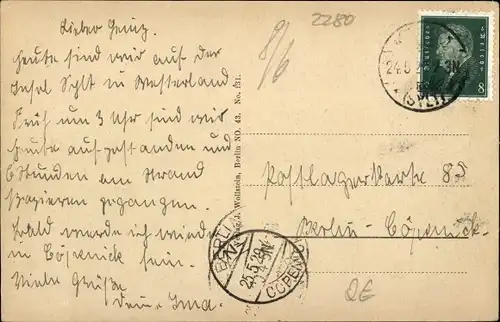 Lieber Heinz,
heute sind wir auf der
Insel Sylt in Westerland
Früh um 3 Uhr sind wir
heute aufgestanden und
6 Stunden am Strand
spazieren gegangen.
Bald werde ich wieder
in Cöpenick sein.
Viele Grüße
Deine Irma.
8/6
2280
Wollstein, Berlin NO. 43. No.
8
24.5.
(SYLT)
Postlagerkarte 85
Berlin-Cöpenick
BERLIN
25.5.29
CÖPENICK
QE